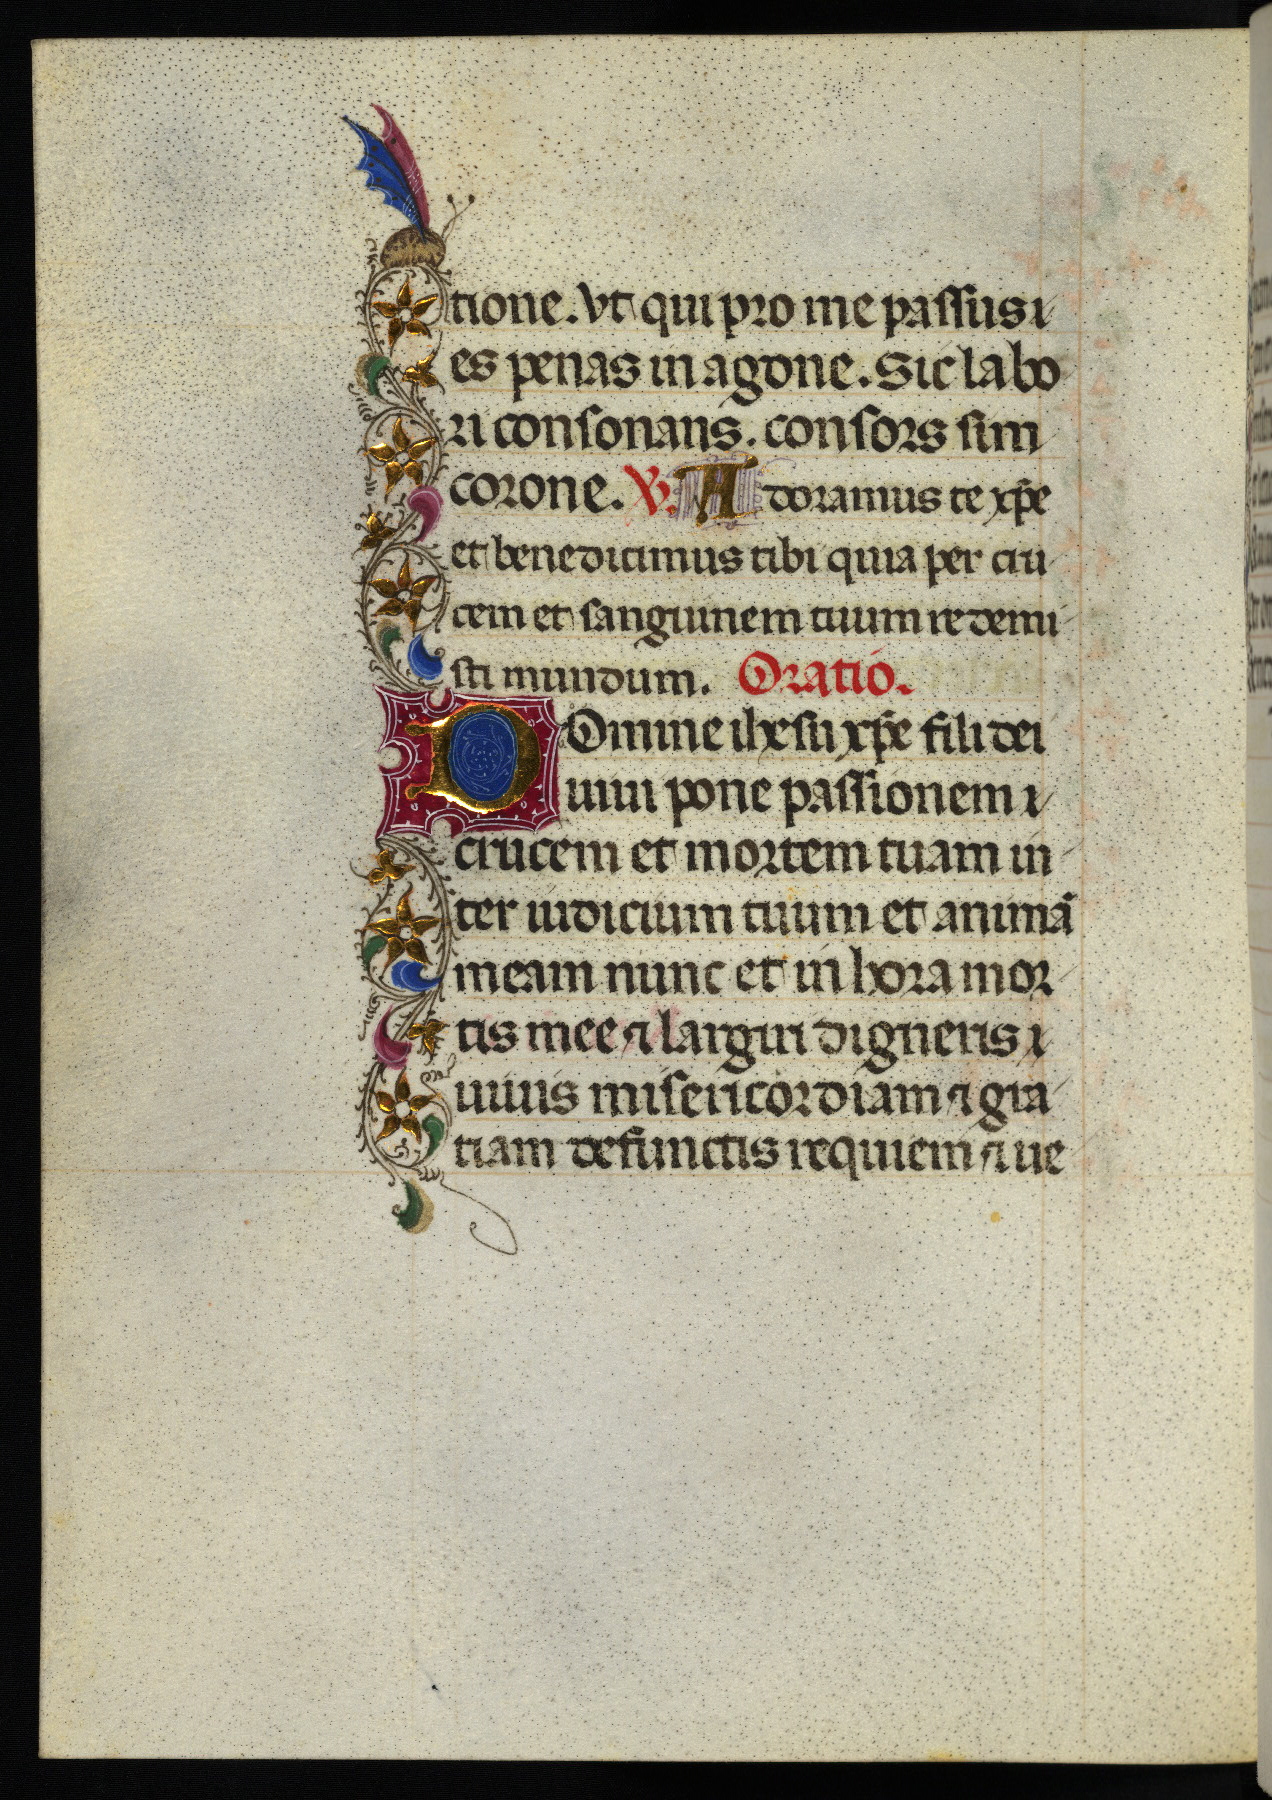 tione. Vt qui pro me passus ı
es penas in agone. Sic labo
ri consonans. consors sim
corone. ℣. Adoramus te xp̄e
et benedicimus tibi quia per cru
cem et sanguinem tuum redemi
sti mundum. Oratio.
Domine ihesu xp̄e fili dei
uiui pone passionem ı
crucem et mortem tuam in
ter iudicium tuum et animā
meam nunc et in hora mor
tis mee ⁊ largiri digneris ı
uiuis misericordiam ⁊ gra
tiam defunctis requiem ⁊ ue